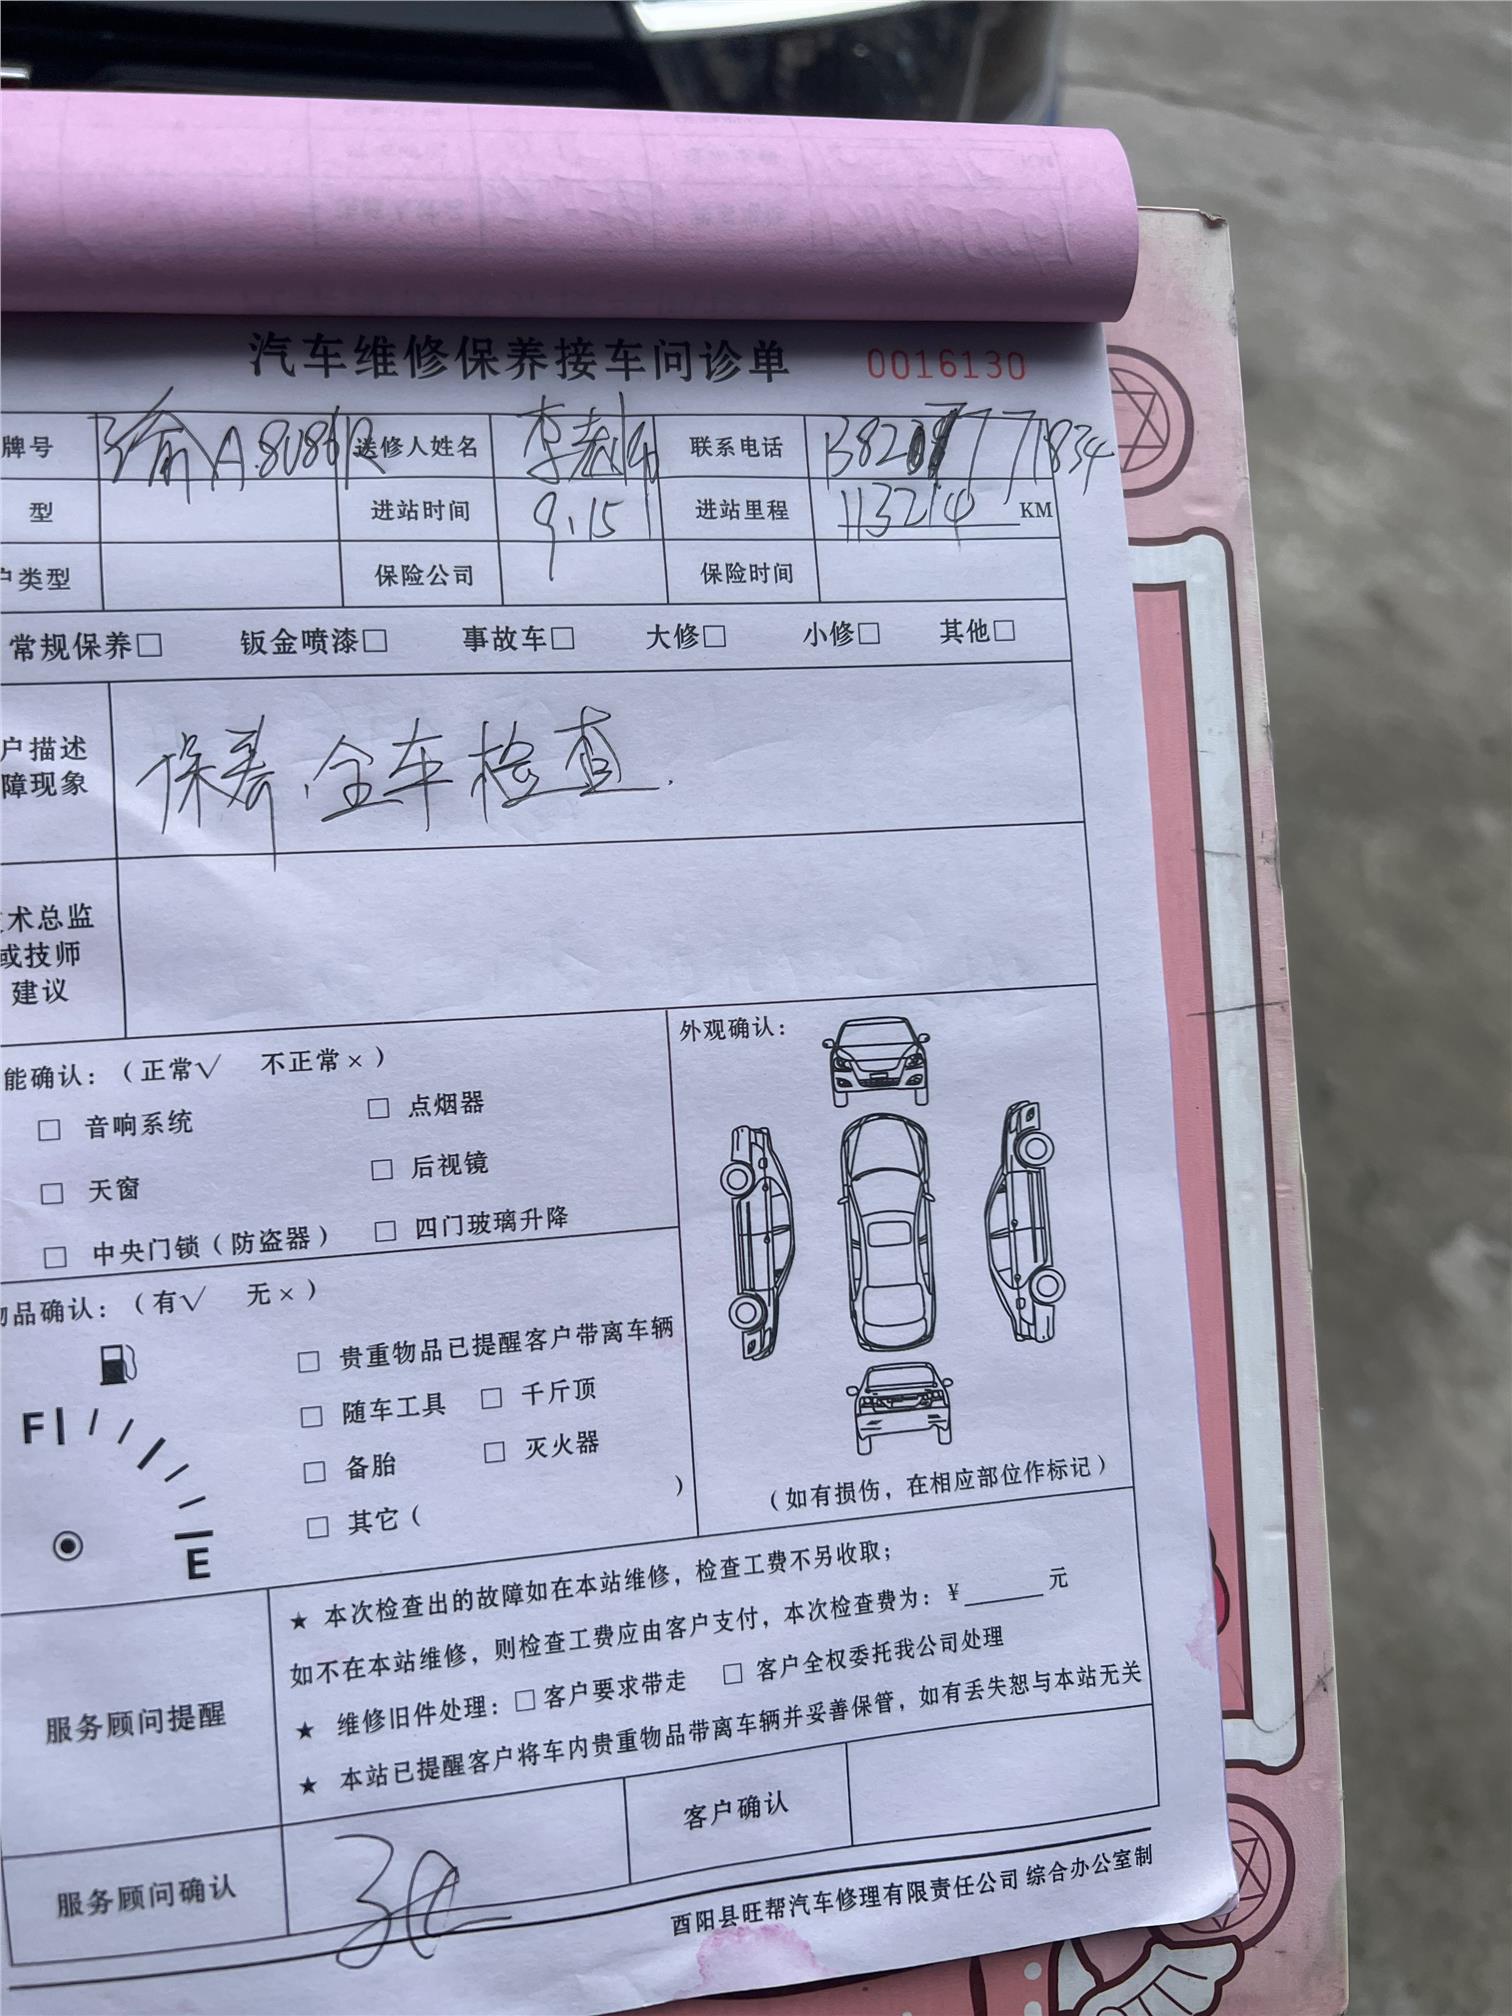 汽车维修保养接车问诊单 0016130
牌号 渝A·8086R 送修人姓名 李 联系电话
型 进站时间 9.15 进站里程 113214 KM
户类型 保险公司 保险时间
常规保养□ 钣金喷漆□ 事故车□ 大修□ 小修□ 其他□
户描述
障现象
保养.全车检查.
术总监
或技师
建议
能确认:(正常√ 不正常×)
□ 音响系统 □ 点烟器
□ 天窗 □ 后视镜
□ 中央门锁(防盗器) □ 四门玻璃升降
外观确认:
(如有损伤,在相应部位作标记)
物品确认:(有√ 无×)
□ 贵重物品已提醒客户带离车辆
□ 随车工具 □ 千斤顶
□ 备胎 □ 灭火器
□ 其它( )
F
E
服务顾问提醒
★ 本次检查出的故障如在本站维修,检查工费不另收取;
如不在本站维修,则检查工费应由客户支付,本次检查费为:¥______元
★ 维修旧件处理:□客户要求带走 □ 客户全权委托我公司处理
★ 本站已提醒客户将车内贵重物品带离车辆并妥善保管,如有丢失恕与本站无关
服务顾问确认 客户确认
酉阳县旺帮汽车修理有限责任公司 综合办公室制